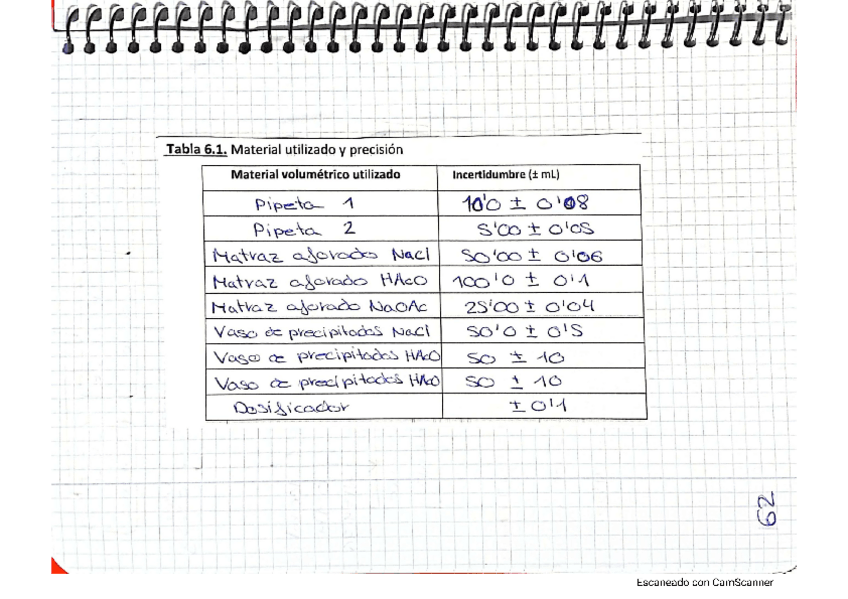 Tabla 6.1. Material utilizado y precisión
Material volumétrico utilizado Incertidumbre (± mL)
Pipeta 1 10'0 ± 0'08
Pipeta 2 5'00 ± 0'05
Matraz aforado NaCl 50'00 ± 0'06
Matraz aforado HAcO 100'0 ± 0'1
Matraz aforado NaOAc 25'00 ± 0'04
Vaso de precipitados NaCl 50'0 ± 0'5
Vaso de precipitados HAcO 50 ± 10
Vaso de precipitados HAcO 50 ± 10
Dosificador ± 0'1
62
Escaneado con CamScanner